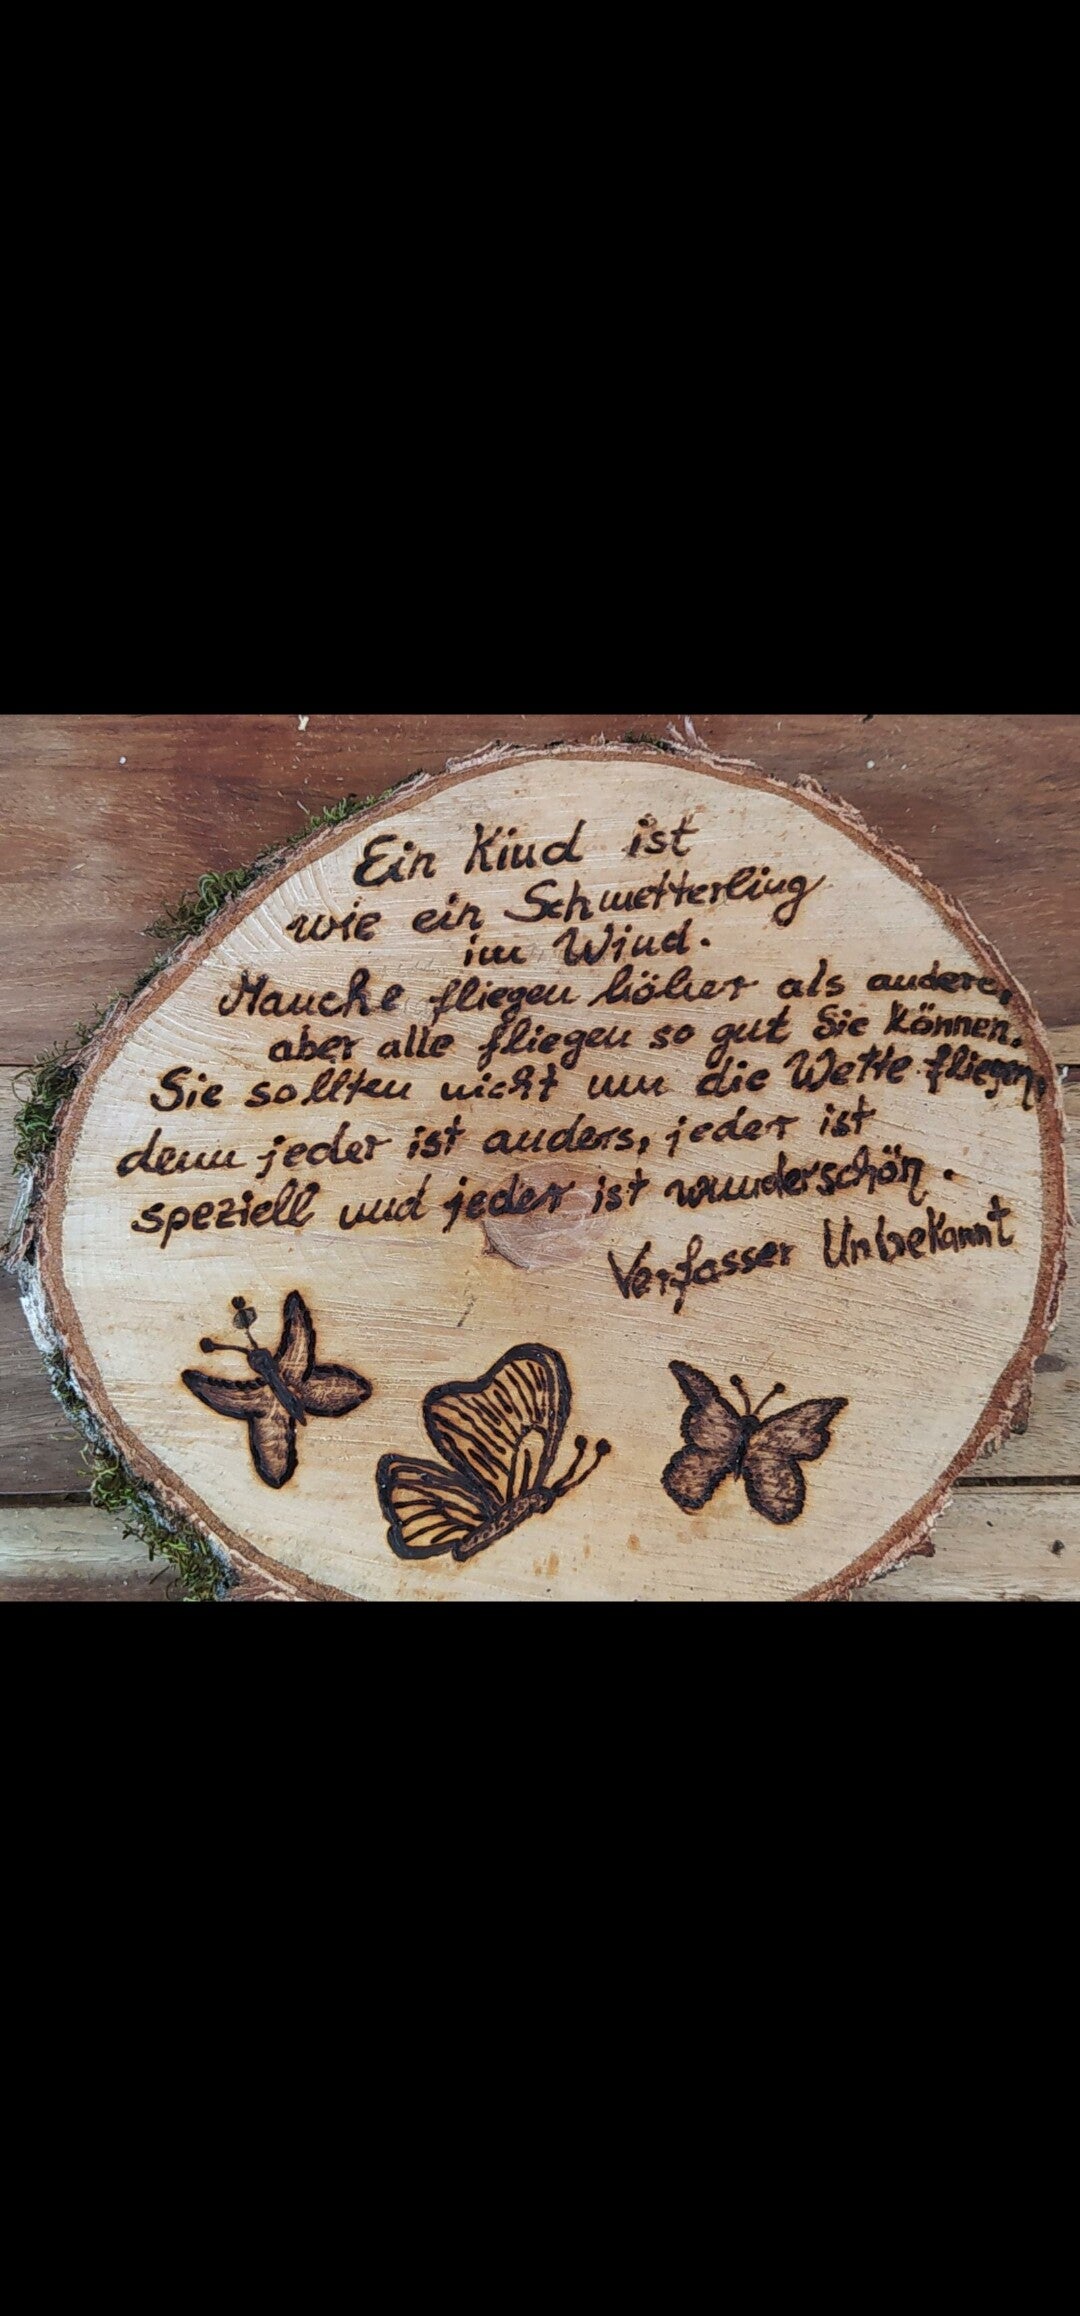 Ein Kind ist
wie ein Schmetterling
im Wind.
Manche fliegen höher als andere,
aber alle fliegen so gut Sie können.
Sie sollten nicht um die Wette fliegen,
denn jeder ist anders, jeder ist
speziell und jeder ist wunderschön.
Verfasser Unbekannt